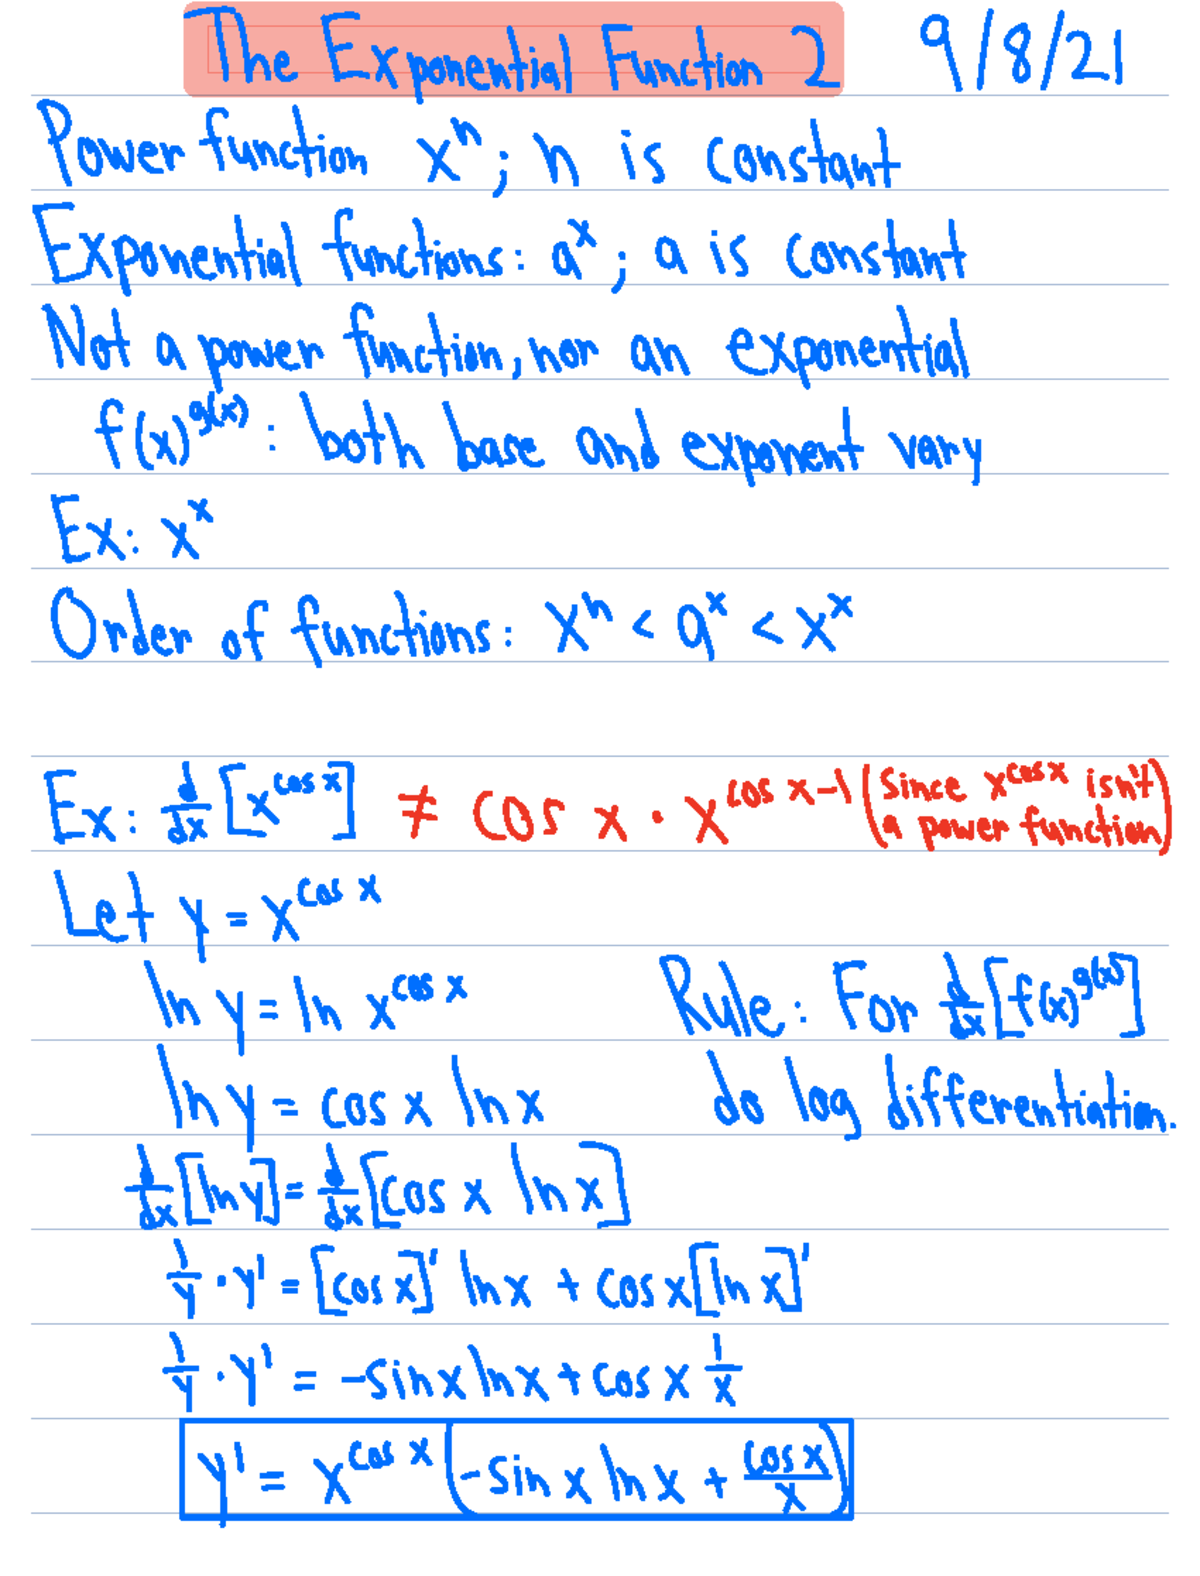 The Exponential Function 2 9/8/21
Power function xⁿ; n is constant
Exponential functions: aˣ; a is constant
Not a power function, nor an exponential
f(x)^g(x) : both base and exponent vary
Ex: xˣ
Order of functions: xⁿ < aˣ < xˣ
Ex: d/dx [x^cos x] ≠ cos x · x^cos x-1 (since x^cos x isn't a power function)
Let y = x^cos x
ln y = ln x^cos x
Rule: For d/dx [f(x)^g(x)]
ln y = cos x ln x
do log differentiation.
d/dx [ln y] = d/dx [cos x ln x]
1/y · y' = [cos x]' ln x + cos x [ln x]'
1/y · y' = -sin x ln x + cos x 1/x
y' = x^cos x (-sin x ln x + cos x/x)